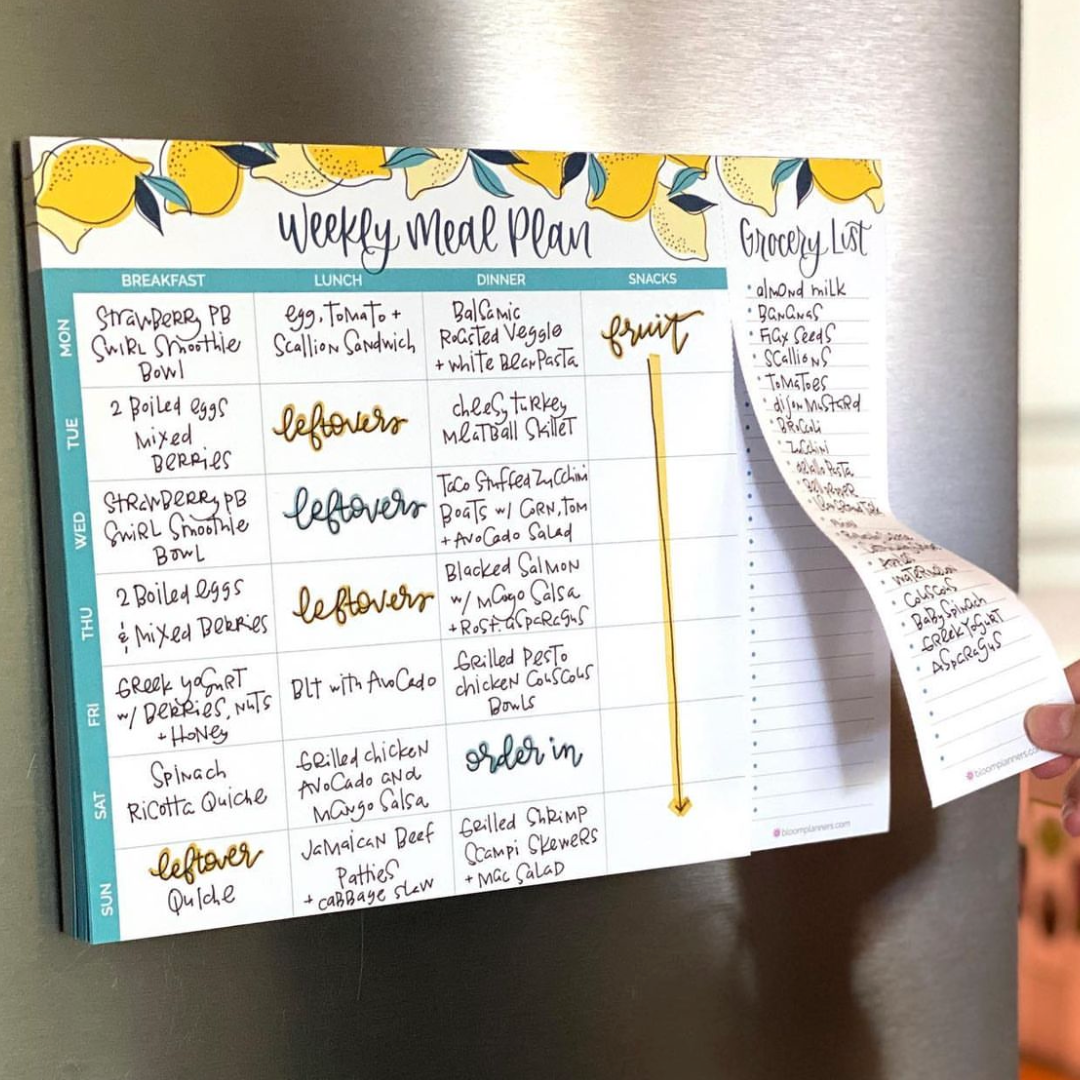 Weekly Meal Plan
BREAKFAST LUNCH DINNER SNACKS
MON
Strawberry PB
Swirl Smoothie
Bowl
egg, Tomato +
Scallion Sandwich
Balsamic
Roasted Veggie
+ white Bean Pasta
fruit
TUE
2 Boiled eggs
Mixed
Berries
leftovers
cheesy turkey
Meatball Skillet
WED
Strawberry PB
Swirl Smoothie
Bowl
leftovers
Taco Stuffed Zucchini
Boats w/ Corn, Tom
+ Avocado Salad
THU
2 Boiled eggs
& Mixed Berries
leftovers
Blacked Salmon
w/ Mago Salsa
+ Rost. asparagus
FRI
Greek yogurt
w/ Berries, Nuts
+ Honey
BLT with Avocado
Grilled Pesto
chicken Couscous
Bowls
SAT
Spinach
Ricotta Quiche
Grilled chicken
Avocado and
Mango Salsa
order in
SUN
leftover
Quiche
Jamaican Beef
Patties
+ cabbage slaw
Grilled Shrimp
Scampi Skewers
+ Mac Salad
Grocery List
almond milk
Bananas
Flax seeds
Scallions
Tomatoes
dijon Mustard
Brocoli
Zucchini
Pasta
Apple
Watermelon
Couscous
Baby Spinach
Greek Yogurt
Asparagus
bloomplanners.com
bloomplanners.com